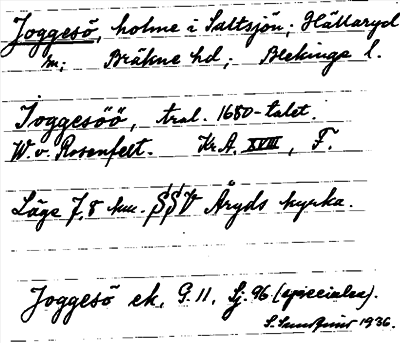 Joggesö, holme i Saltsjön; Hällaryd
sn; Bräkne hd; Blekinge l.
Joggesöö, tral. 1680-talet.
W. v. Rosenfelt. Kr.A. XVIII, F.
Läge 7,8 km. SSV Åryds kyrka.
Joggesö ek. G. 11, Sj. 96 (specialen).
1936.